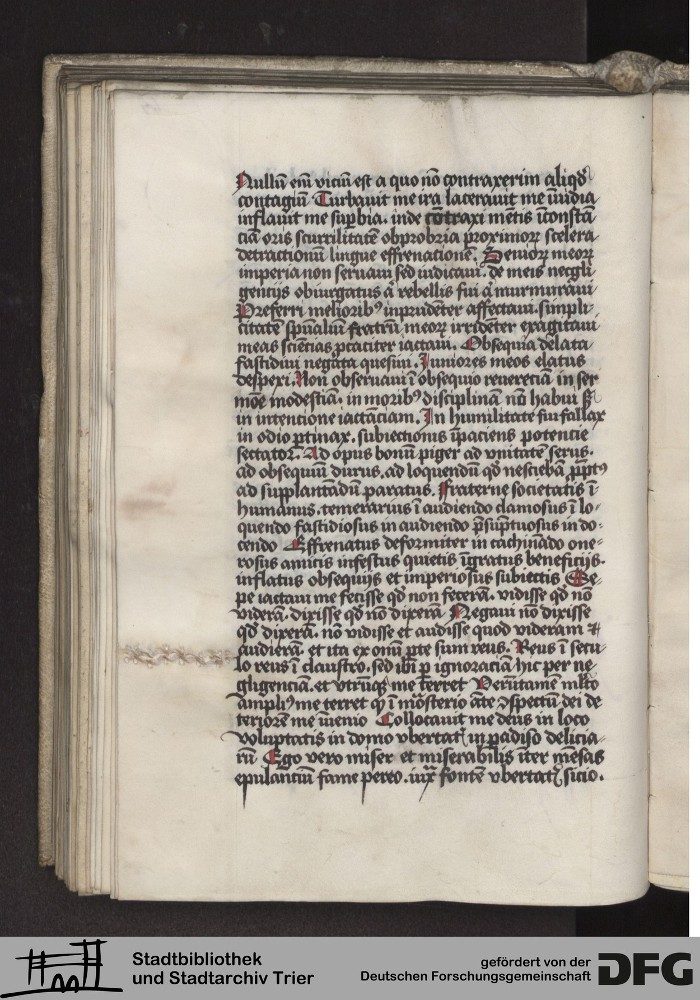 Nullū em̄ viciū est a quo nō contraxerim aliqd̄
contagiū Turbauit me ira lacerauit me īuidia
inflauit me suꝑbia. inde cōtraxi mētis īconstā
ciā oris scurrilitatē obprobria proximoꝝ scelera
detractionū lingue effrenationē. Senioꝝ meoꝝ
imperia non seruaui sed iudicaui. de meis necgli
gentijs obiurgatus aͭ rebellis fui aͭ murmuraui
Preferri melioribꝰ inprudēter affectaui. simpli-
citatē spūaliū fratrū meoꝝ irridēter exagitaui
meas sciēcias ꝓcaciter iactaui. Obsequia delata
fastidiui negata quesiui. Iuniores meos elatus
despexi. Non obseruaui ī obsequio reuerēciā in ser
mōe modestiā. in moribꝰ disciplinā nō habui sꝫ
in intencione iactāciam. In humilitate fui fallax
in odio ꝑtinax. subiectionis īpaciens potencie
sectator. Ad opus bonū piger ad vnitatē serus.
ad obsequiū durus. ad loquendū qd̄ nesciebā ꝓ̄ptꝰ
ad supplantādū paratus. Fraterne societatis ī
humanus. temerarius ī audiendo clamosus ī lo-
quendo fastidiosus in audiendo p̄sūptuosus in do-
cendo Effrenatus deformiter in cachināndo one-
rosus amicis infestus quietis īgratus beneficijs.
inflatus obsequijs et imperiosus subiectis Se-
pe iactaui me fecisse qd̄ nō fecerā. vidisse qd̄ nō
viderā. dixisse qd̄ nō dixerā Negaui nō dixisse
qd̄ dixerā. nō vidisse et audisse quod videram ⁊
audierā. et ita ex omī ꝑte sum reus. Reus ī secu-
lo reus ī claustro. sed ibi ꝑ ignorāciā hic per ne
gligenciā. et vtrūqꝫ me terret Verūtamē mlto
ampliꝰ me terret qꝫ ī mōsterio āte ꝯspectū dei de
teriorē me īuenio Collocauit me deus in loco
voluptatis in domo vbertatꝭ in padiso delicia-
rū Ego vero miser et miserabilis iter mēsas
epulanciū fame pereo. iux̄ fontē vbertatꝭ sicio.
Stadtbibliothek
und Stadtarchiv Trier
gefördert von der
Deutschen Forschungsgemeinschaft
DFG